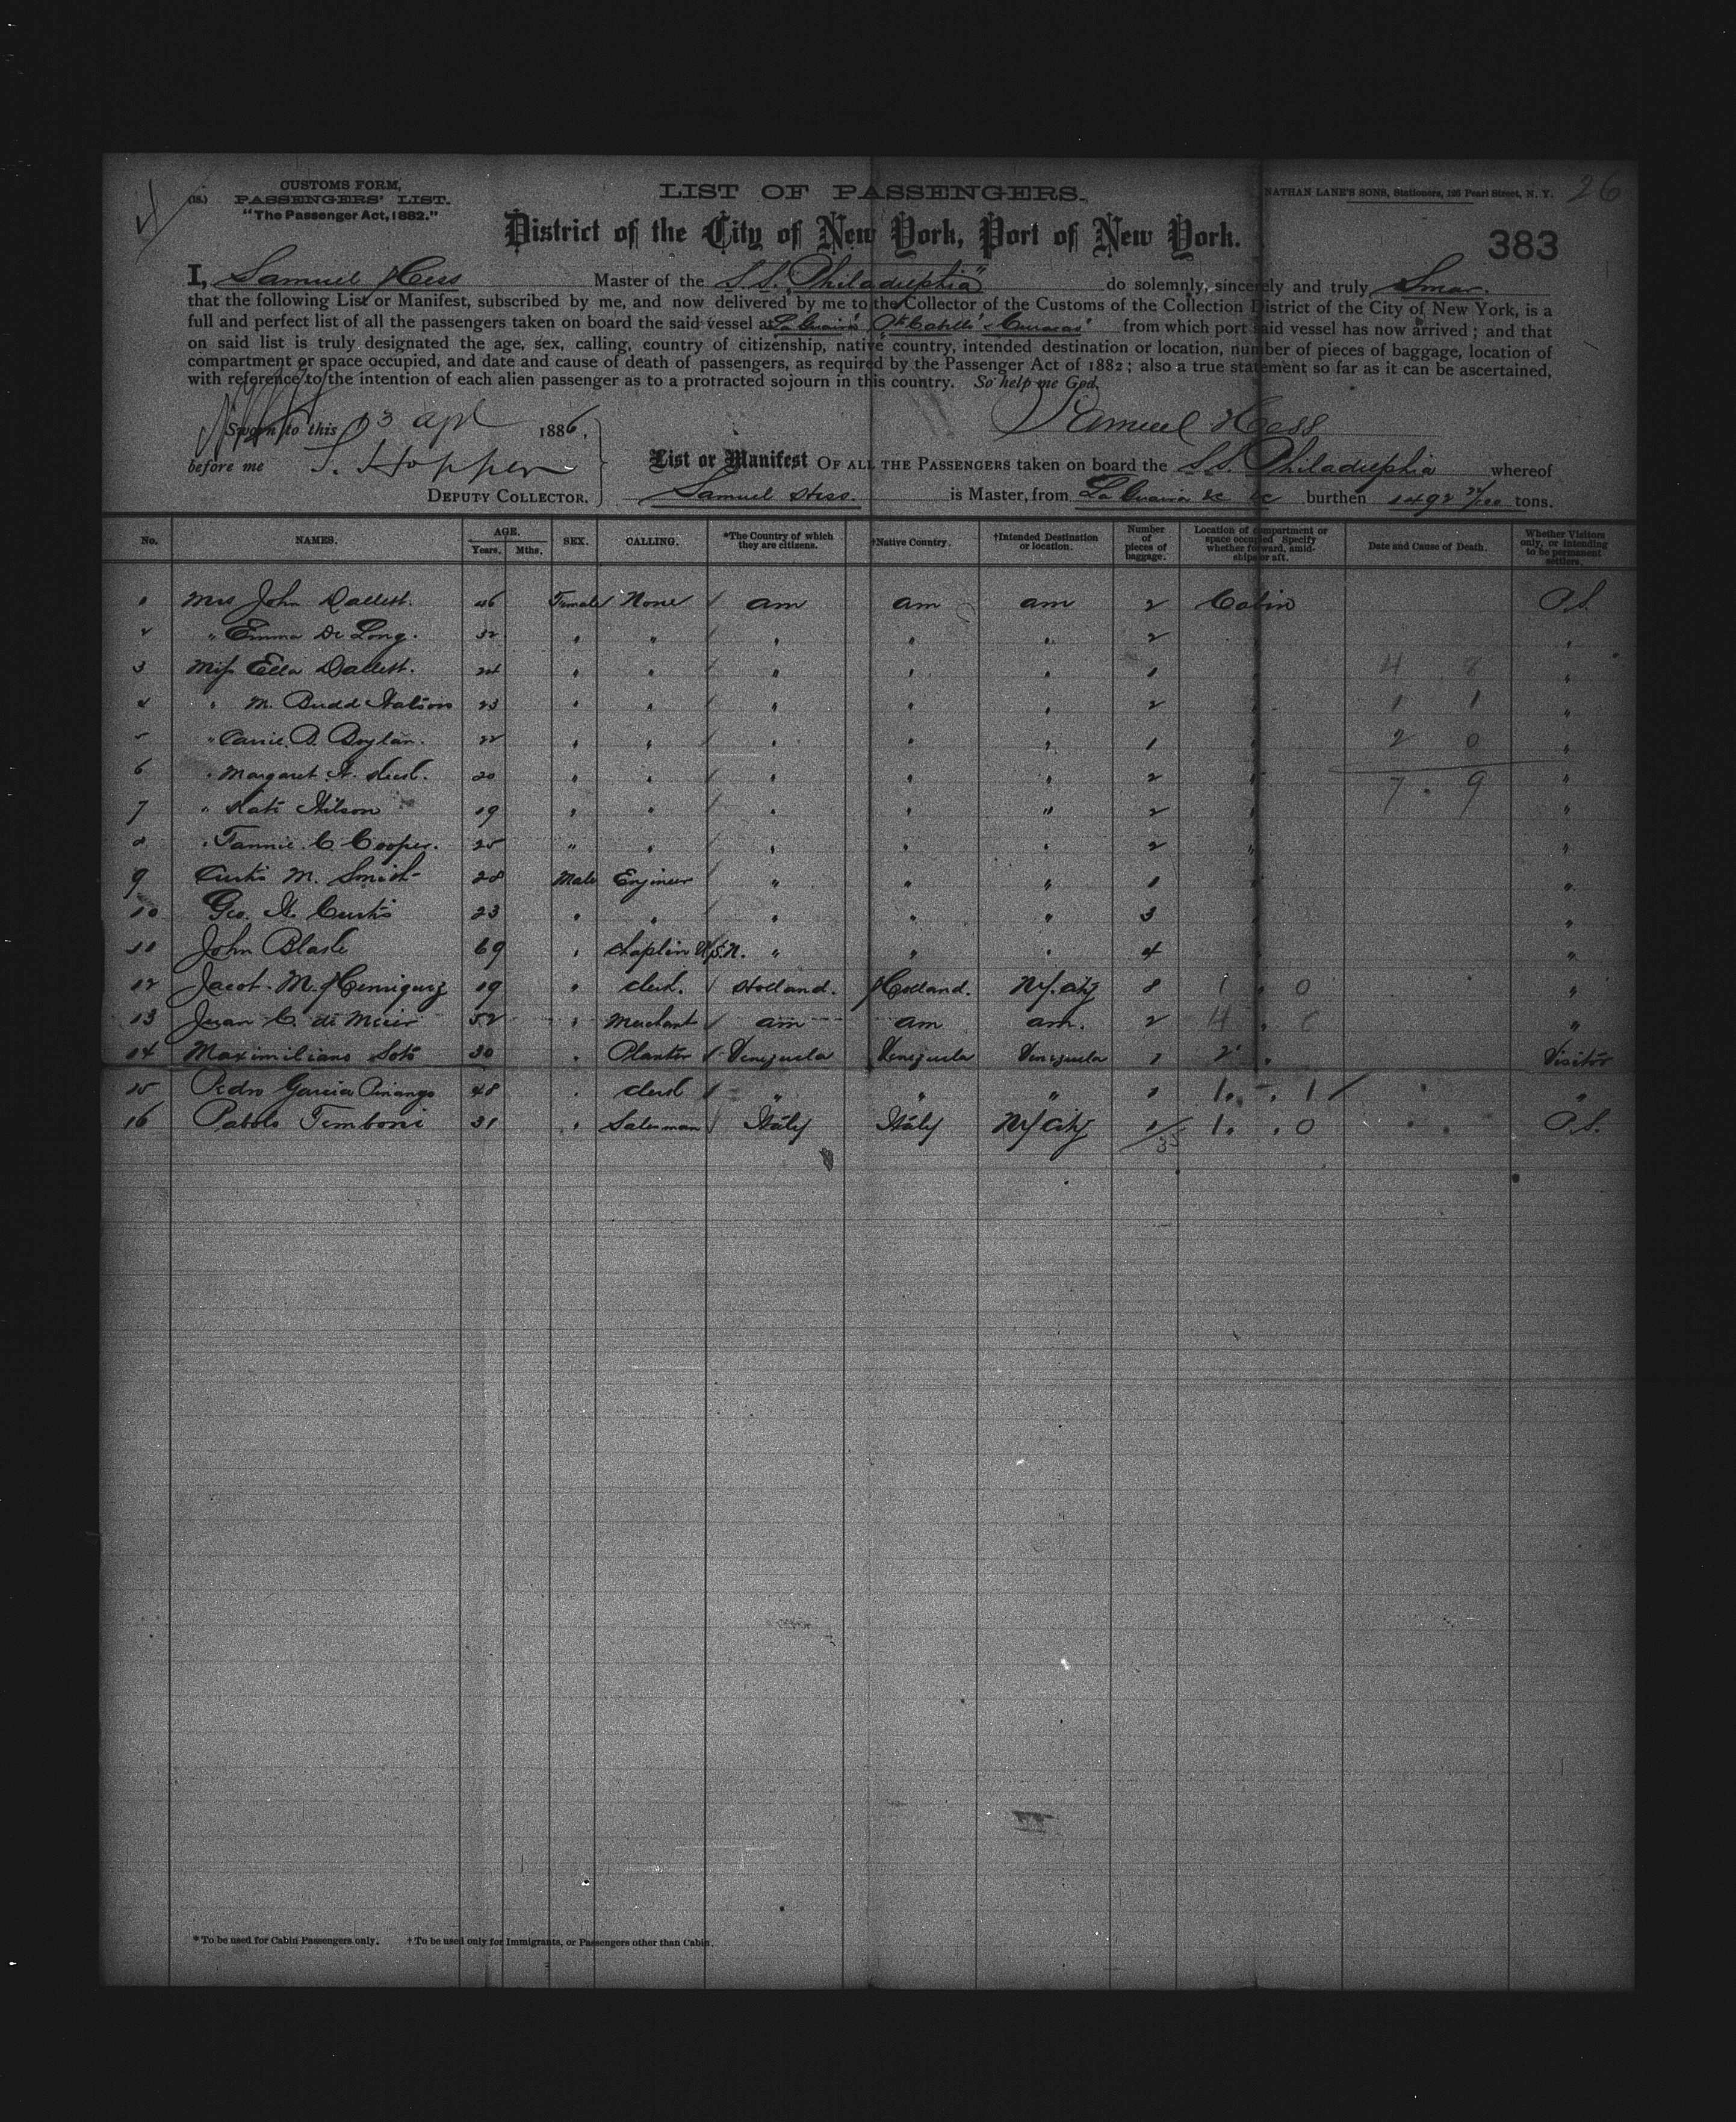 (18.) CUSTOMS FORM,
PASSENGERS' LIST.
"The Passenger Act, 1882."
LIST OF PASSENGERS.
NATHAN LANE'S SONS, Stationers, 195 Pearl Street, N. Y. 26
District of the City of New York, Port of New York.
383
I, Samuel Hess Master of the S.S. "Philadelphia" do solemnly, sincerely and truly Swear
that the following List or Manifest, subscribed by me, and now delivered by me to the Collector of the Customs of the Collection District of the City of New York, is a
full and perfect list of all the passengers taken on board the said vessel at La Guaira Pto Cabello Curacao from which port said vessel has now arrived; and that
on said list is truly designated the age, sex, calling, country of citizenship, native country, intended destination or location, number of pieces of baggage, location of
compartment or space occupied, and date and cause of death of passengers, as required by the Passenger Act of 1882; also a true statement so far as it can be ascertained,
with reference to the intention of each alien passenger as to a protracted sojourn in this country. So help me God.
Sworn to this 03 apl 1886,
Samuel Hess
before me S. Hopper
List or Manifest OF ALL THE PASSENGERS taken on board the S.S. Philadelphia whereof
DEPUTY COLLECTOR.
Samuel Hess. is Master, from La Guaira &c &c burthen 1492 tons.
No. NAMES. AGE. Years. Mths. SEX. CALLING. *The Country of which they are citizens. †Native Country. †Intended Destination or location. Number of pieces of baggage. Location of compartment or space occupied Specify whether forward, amidships or aft. Date and Cause of Death. Whether Visitors only, or intending to be permanent settlers.
1 Mrs John Dallett. 46 Female None am am am 2 Cabin P.S.
2 " Emma De Long. 32 " " " " " 2 " "
3 Miss Ella Dallett. 24 " " " " " 1 " 4 8 "
4 " M. Budd 23 " " " " " 2 " 1 1 "
5 " Carrie B. Boylan. 22 " " " " " 1 " 2 0 "
6 " Margaret 20 " " " " " 2 " 7 . 9 "
7 " Kate Wilson 19 " " " " " 2 " "
8 " Fannie C. Cooper. 25 " " " " " 2 " "
9 Curtis M. Smith 28 Male Engineer " " " 1 " "
10 Geo. W. Curtis 23 " " " " " 3 " "
11 John Blake 69 " Chaplin U.S.N. " " " 4 " "
12 Jacob M. Henriquez 19 " Clerk. Holland. Holland. N.Y. City 8 1 " 0 "
13 Juan C. de Meier 52 " Merchant am am am. 2 4 " "
14 Maximiliano Soto 30 " Planter Venezuela Venezuela Venezuela 1 2 " Visitor
15 Pedro Garcia Pinango 48 " Clerk " " " 1 1. . 1 "
16 Pablo Timboni 31 " Salesman Italy Italy N.Y City 1 1. . 0 P.S.
35
* To be used for Cabin Passengers only. † To be used only for Immigrants, or Passengers other than Cabin.